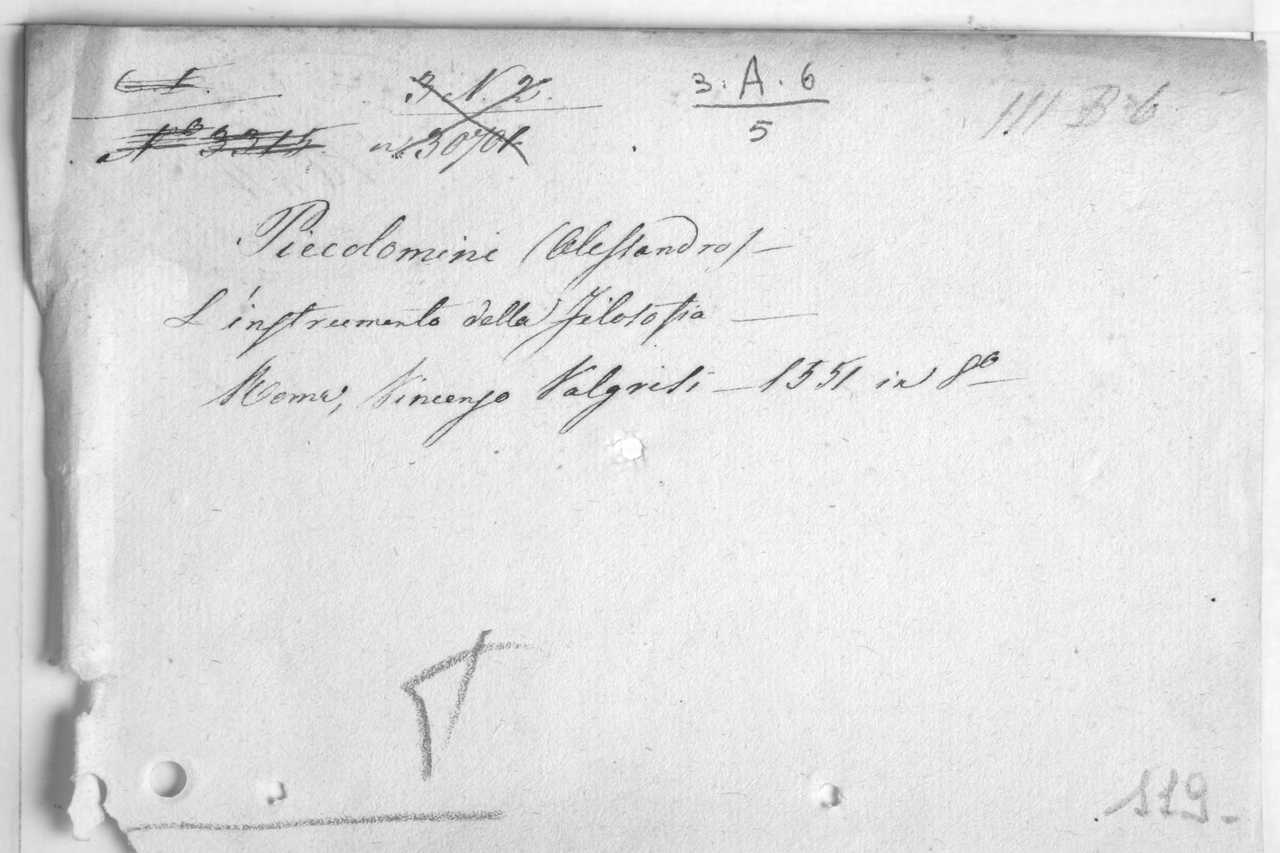 3 N. 2.
3 . A . 6
5
III B 6
Piccolomini (Alessandro) —
L'instrumento della Filosofia —
Roma, Vincenzo Valgrisi — 1551 in 8º —
119 -